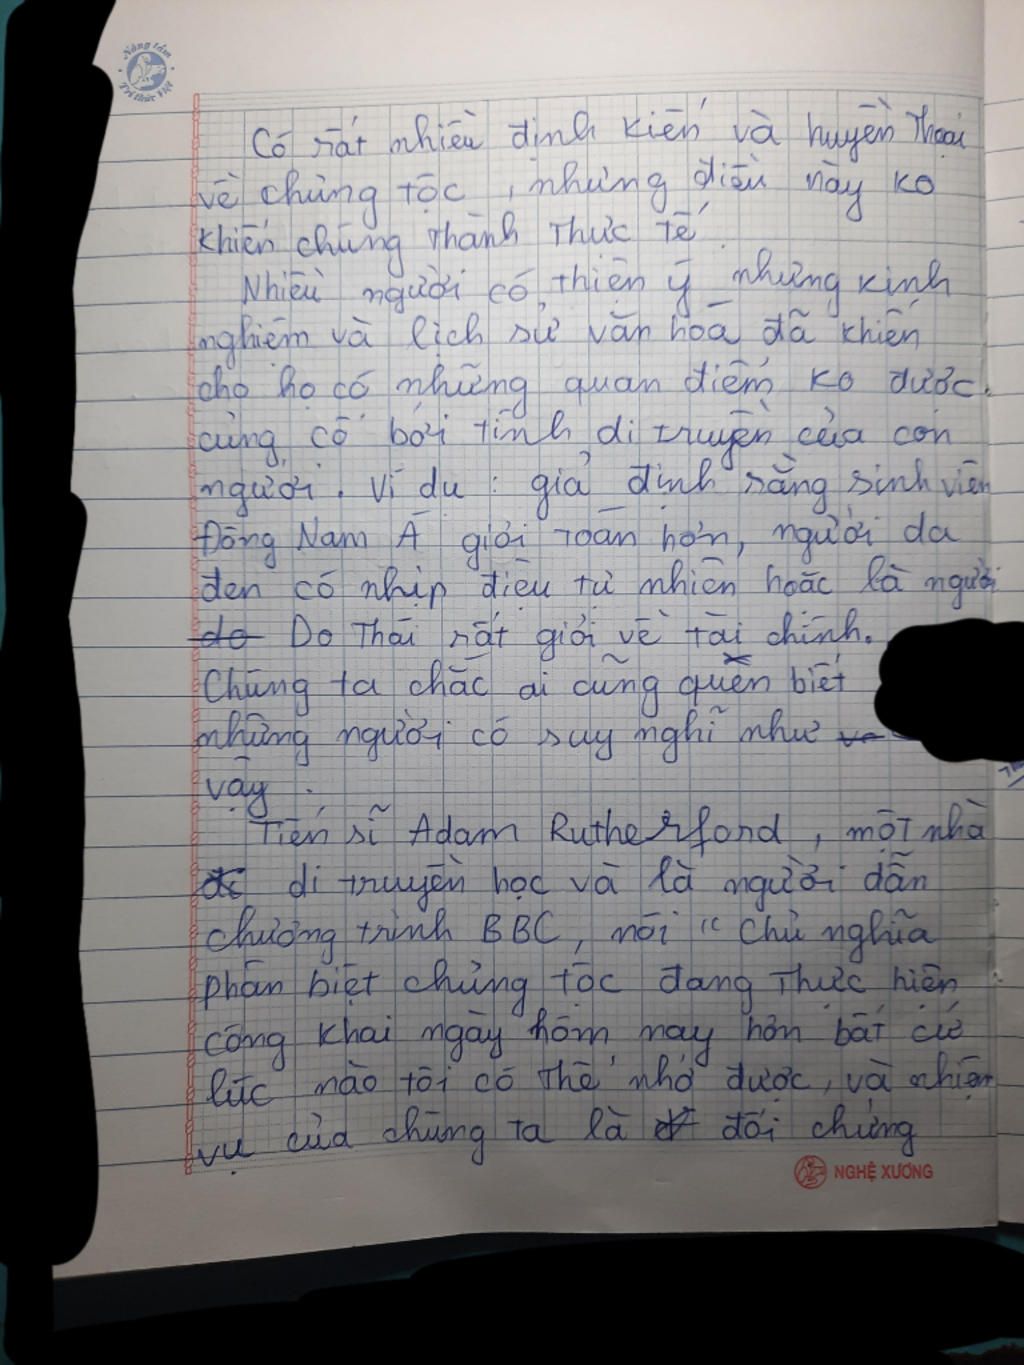 Nâng tầm
Trí thức Việt
Có rất nhiều định kiến và huyền thoại
về chủng tộc, nhưng điều này ko
khiến chúng thành thực tế.
Nhiều người có thiện ý nhưng kinh
nghiệm và lịch sử văn hóa đã khiến
cho họ có những quan điểm ko được
củng cố bởi tính di truyền của con
người. Ví dụ: giả định rằng sinh viên
Đông Nam Á giỏi toán hơn, người da
đen có nhịp điệu tự nhiên hoặc là người
do Do Thái rất giỏi về tài chính.
Chúng ta chắc ai cũng quen biết
những người có suy nghĩ như
vậy.
Tiến sĩ Adam Rutherford, một nhà
di truyền học và là người dẫn
chương trình BBC, nói "Chủ nghĩa
phân biệt chủng tộc đang thực hiện
công khai ngày hôm nay hơn bất cứ
lúc nào tôi có thể nhớ được, và nhiệm
vụ của chúng ta là đối chứng
NGHỆ XƯƠNG